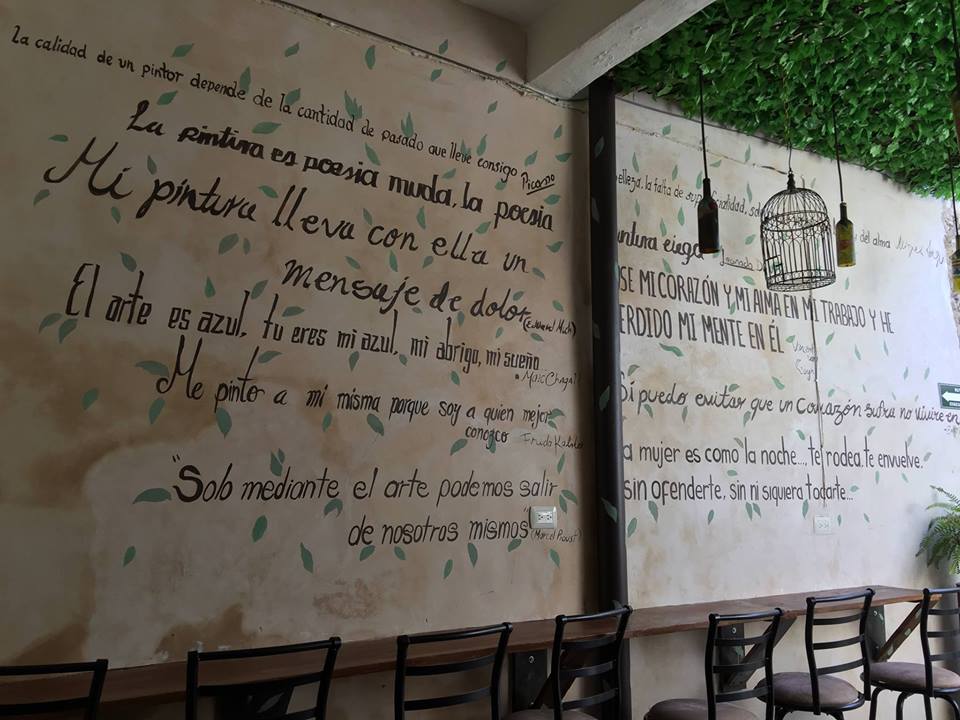 La calidad de un pintor depende de la cantidad de pasado que lleve consigo
Picasso
La pintura es poesia muda, la poesia
Mi pintura lleva con ella un
mensaje de dolor
El arte es azul, tu eres mi azul, mi abrigo, mi sueño...
Marc Chagall
Me pinto a mi misma porque soy a quien mejor
conozco
"Solo mediante el arte podemos salir
de nosotros mismos"
(Marcel Proust)
elleza, la falta de
del alma
ciega
SE MI CORAZÓN Y MI ALMA EN MI TRABAJO Y HE
ERDIDO MI MENTE EN ÉL
Si puedo evitar que un Corazón sufra no viviré en
a mujer es como la noche..., te rodea. te envuelve.
sin ofenderte, sin ni siquiera tocarte...